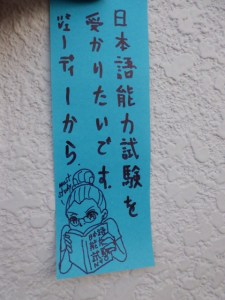 日本語能力試験を
受かりたいです。
ジューディーから。
must
study!